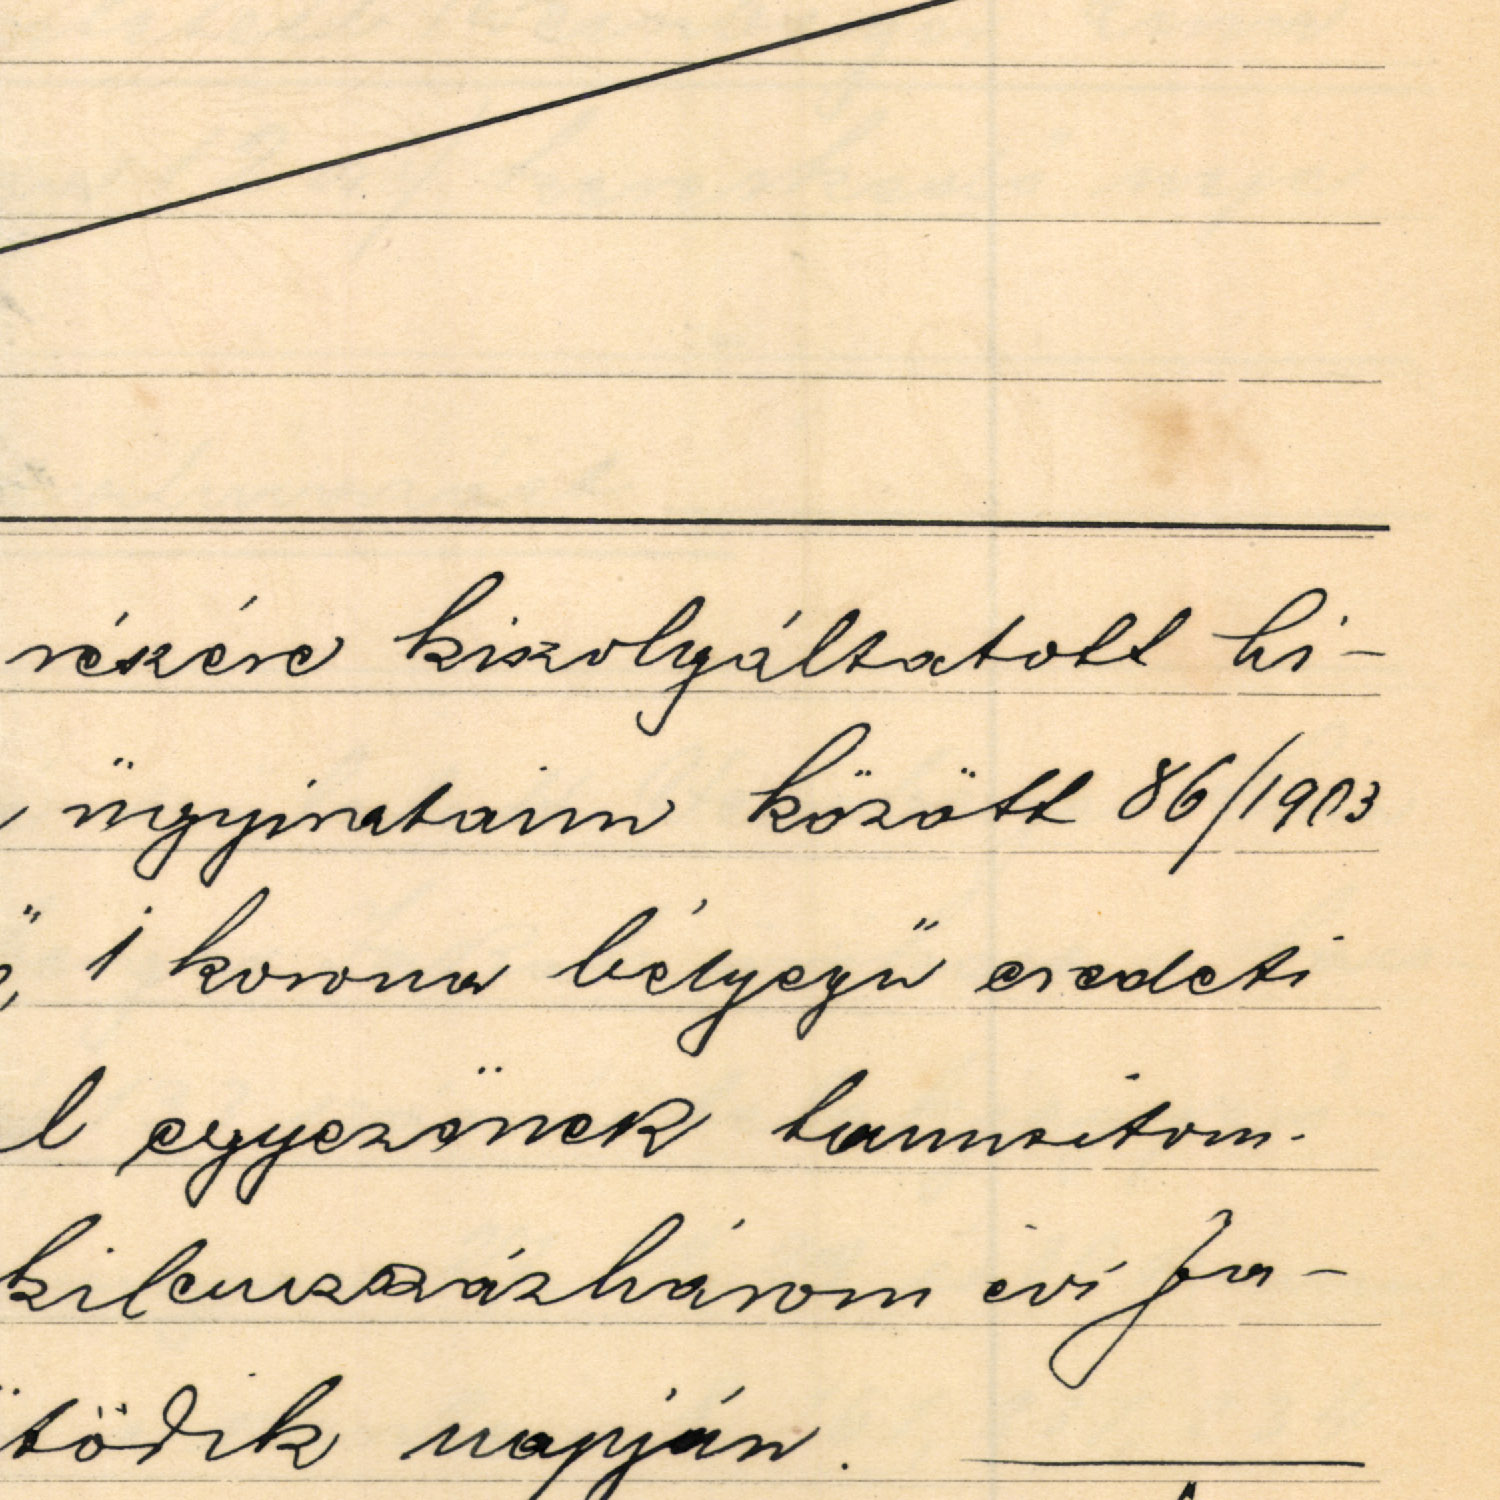 részére kiszolgáltatott hi-
ügyirataim között 86/1903
1 korona bélyegü eredeti
l egyezőnek tanusitom.
kilencszázhárom évi Ja-
tödik napján.